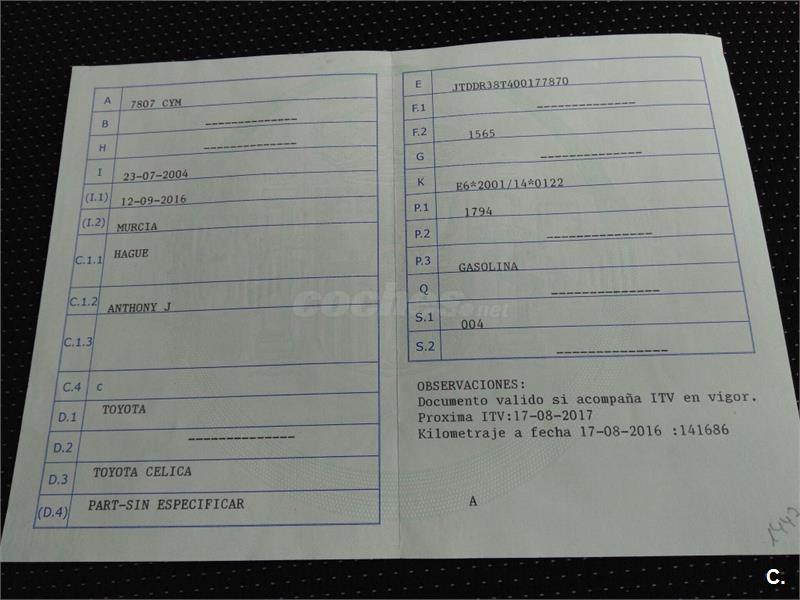 A 7807 CYM
B --------------
H --------------
I 23-07-2004
(I.1) 12-09-2016
(I.2) MURCIA
C.1.1 HAGUE
C.1.2 ANTHONY J
C.1.3
C.4 c
D.1 TOYOTA
D.2 --------------
D.3 TOYOTA CELICA
(D.4) PART-SIN ESPECIFICAR
E JTDDR38T400177870
F.1 --------------
F.2 1565
G --------------
K E6*2001/14*0122
P.1 1794
P.2 --------------
P.3 GASOLINA
Q --------------
S.1 004
S.2 --------------
OBSERVACIONES:
Documento valido si acompaña ITV en vigor.
Proxima ITV:17-08-2017
Kilometraje a fecha 17-08-2016 :141686
A
1442
coches.net
C.